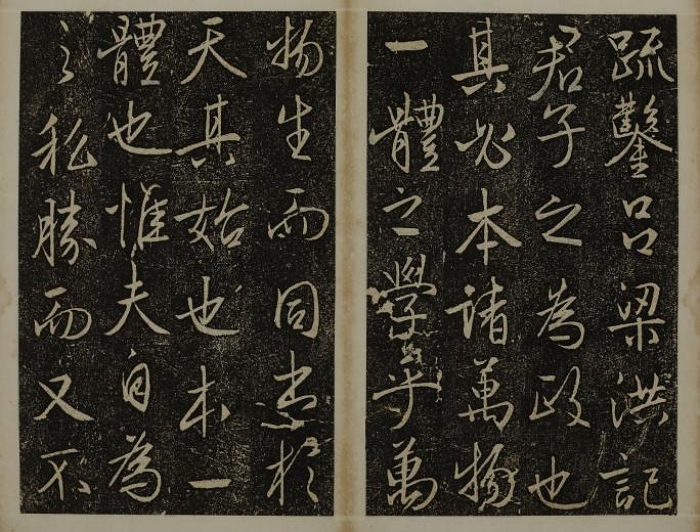 疏鑿呂梁洪記
君子之為政也
其必本諸萬物
一體之學乎萬
物生而同出於
天其始也本一
體也惟夫自為
之私勝而又不